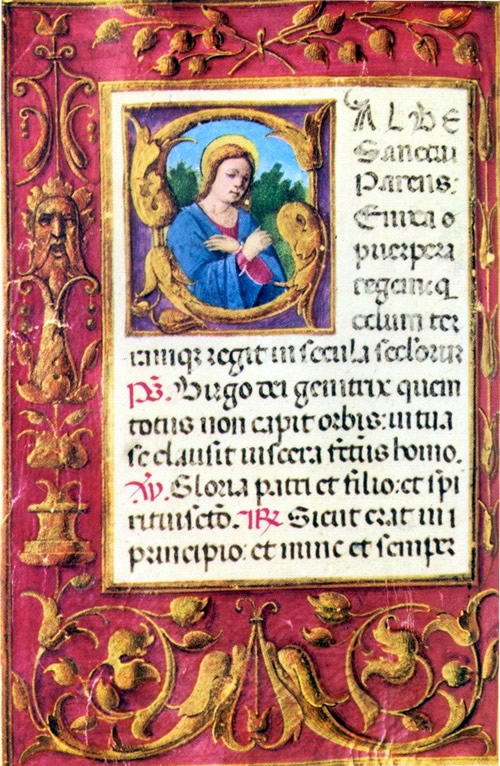 SALVE
Sancta
Parens:
Enixa o
puerpera
regem: q
celum ter
ramq; regit in secula seclorum
Ps. Virgo dei genitrix quem
totus non capit orbis: in tua
se clausit viscera fctus homo.
V. Gloria patri et filio: et spi
ritui scto. R. Sicut erat in
principio: et nunc et semper